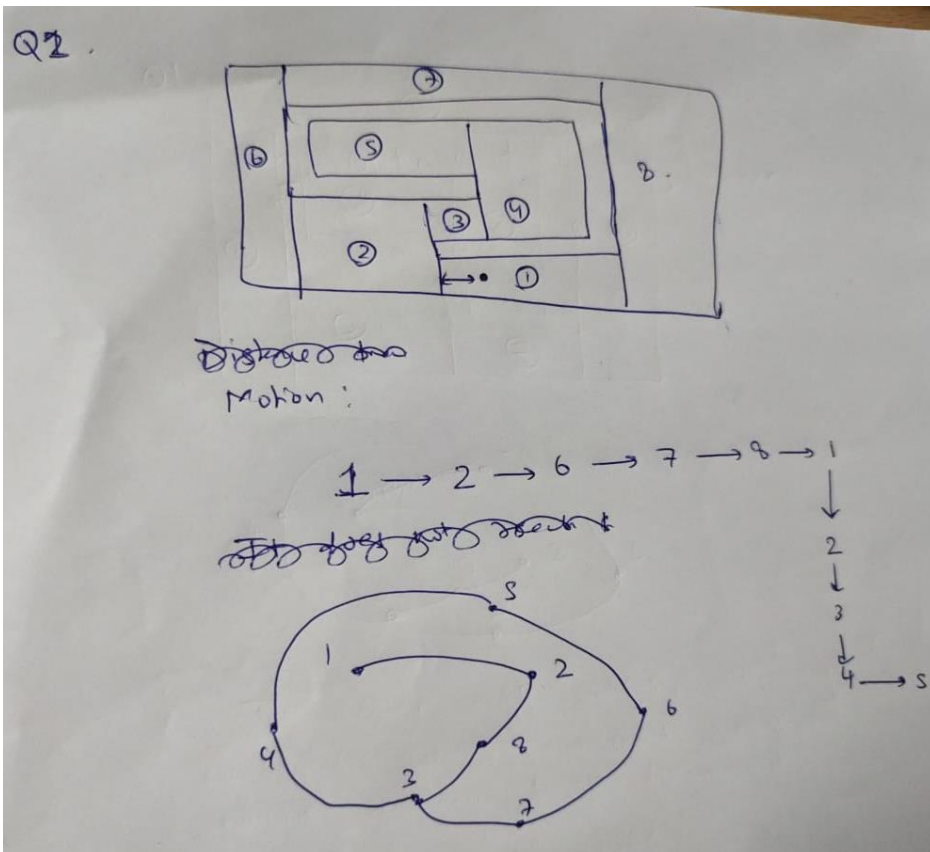 Q2.
7
6
5
8.
3
4
2
1
Motion:
1 → 2 → 6 → 7 → 8 → 1
↓
2
↓
3
↓
4 → 5
5
1
2
6
8
4
3
7